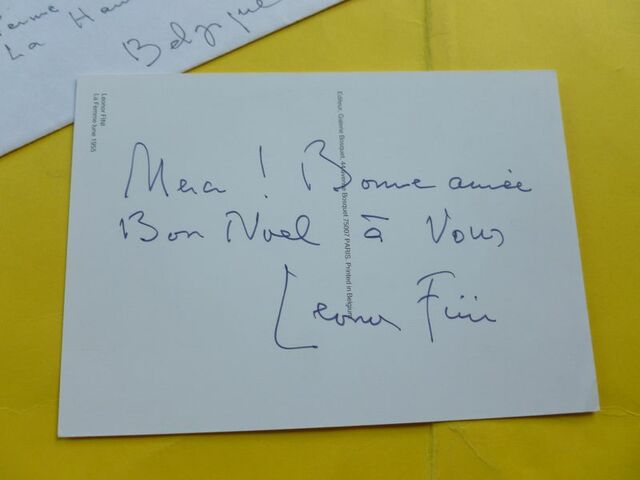 La
Belgique
Leonor Fini
La Femme lune 1955
Editeur, Galerie Bosquet, 44 avenue Bosquet 75007 PARIS. Printed in Belgium
Merci ! Bonne année
Bon Noel à Vous
Leonor Fini